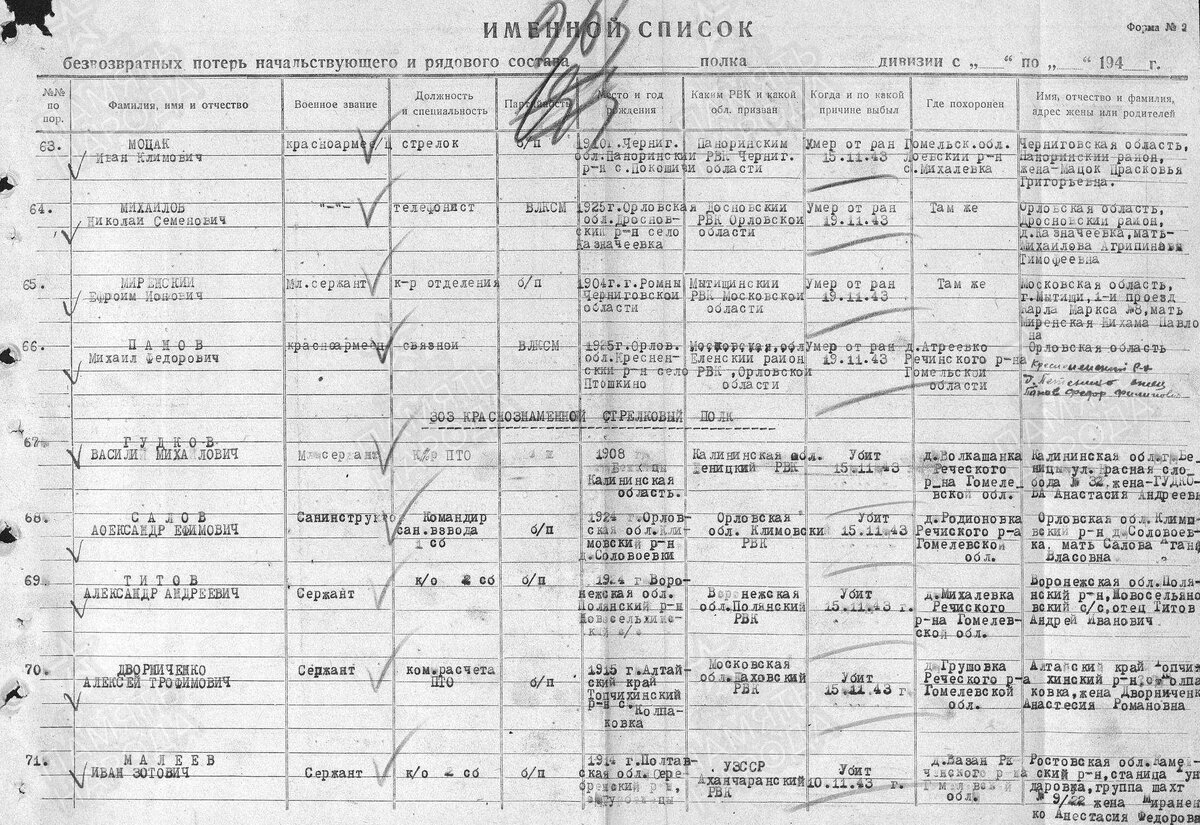 ИМЕННОЙ СПИСОК
Форма № 2
безвозвратных потерь начальствующего и рядового состава полка дивизии с „ “ по „ “ 194 г.
№№ по пор.
Фамилия, имя и отчество
Военное звание
Должность и специальность
Партийность
Место и год рождения
Каким РВК и какой обл. призван
Когда и по какой причине выбыл
Где похоронен
Имя, отчество и фамилия, адрес жены или родителей
63. МОЦАК красноармеец стрелок б/п 1910г.Черниг. Паноринским Умер от ран Гомельск.обл. Черниговская область,
Иван Климович обл.Паноринский РВК Черниг. 15.11.43 Лоевский р-н Паноринский район,
р-н с.Покошичи области с.Михалевка жена-Мацок Прасковья
Григорьевна.
64. МИХАЙЛОВ "-"- телефонист ВЛКСМ 1925г.Орловская Досновский Умер от ран Там же Орловская область,
Николай Семенович обл.Дроснов- РВК Орловской 19.11.43 Дросновский район,
ский р-н село области д.Казначеевка,мать-
Казначеевка Михайлова Агрипинава
Тимофеевна
65. МИРЕНСКИЙ Мл.сержант к-р отделения б/п 1904г.г.Ромны Мытищинский Умер от ран Там же Московская область,
Ефроим Йонович Черниговской РВК Московской 19.11.43 г.Мытищи,1-й проезд
области области Карла Маркса №8,мать
Миренская Михама Павло
на
66. ПАНОВ красноармеец связной ВЛКСМ 1925г.Орлов. Московская обл Умер от ран д.Атреевко Орловская область
Михаил Федорович обл.Креснен- Еленский район 19.11.43 Речинского р-на
ский р-н село РВК ,Орловской Гомельской
Птошкино области области
Панов Федор
303 КРАСНОЗНАМЕННОЙ СТРЕЛКОВЫЙ ПОЛК
67. ГУДКОВ
ВАСИЛИЙ МИХАЙЛОВИЧ Мл.сержант к/р ПТО 1908 Калининская обл. Убит д.Волкашанка Калининская обл.г.Бе-
Калининская еницкий РВК 15.11.43 Реческого ницы ул.Красная сло-
область. р_на Гомеле- бода № 32,жена-ГУДКО-
вской обл. ВА Анастасия Андреев
68. САЛОВ Санинструк Командир 1924 г.Орлов- Орловская Убит д.Родионовка Орловская обл.Климо-
АОЕКСАНДР ЕФИМОВИЧ сан.взвода б/п ская обл.Кли- обл. Климовский 15.11.43 Речиского р-а вский р-н д.Соловоев-
1 сб мовский р-н РВК Гомелевской ка, мать Салова
д.Соловоевки обл. Власовна
69. ТИТОВ к/о 2 сб б/п 1924 г Воро- Воронежская обл.Поля-
АЛЕКСАНДР АНДРЕЕВИЧ Сержант нежская обл. Воронежская Убит д.Михалевка нский р-н,Новосельяно
Полянский р-н обл.Полянский 15.11.43 г. Речиского вский с/с,отец Титов
РВК р-на Гомелев- Андрей Иванович
ской обл.
70. ДВОРНИЧЕНКО Сержант ком.расчета 1915 г.Алтай- Московская д.Грушовка Алтайский край Топчи
АЛЕКСЕЙ ТРОФИМОВИЧ ПТО б/п ский край обл.Шаховский Убит Реческого р-а хинский р-н,
Топчихинский РВК 15.11.43 г. Гомелевской ковка,жена Дворничен
р-н с. обл. Анастесия Романовна
Колпа-
ковка
71. МАЛЕЕВ 1914 г.Полтав- УЗССР д.Вазан Ре Ростовская обл.Камен
ИВАН ЗОТОВИЧ Сержант к/о 2 сб б/п ская обл. Аханчаранский Убит р-на ский р-н,станица
РВК 10.11.43 г. обл. даровка,группа шахт
№ 9/22 жена
ко Анастасия Федоровн